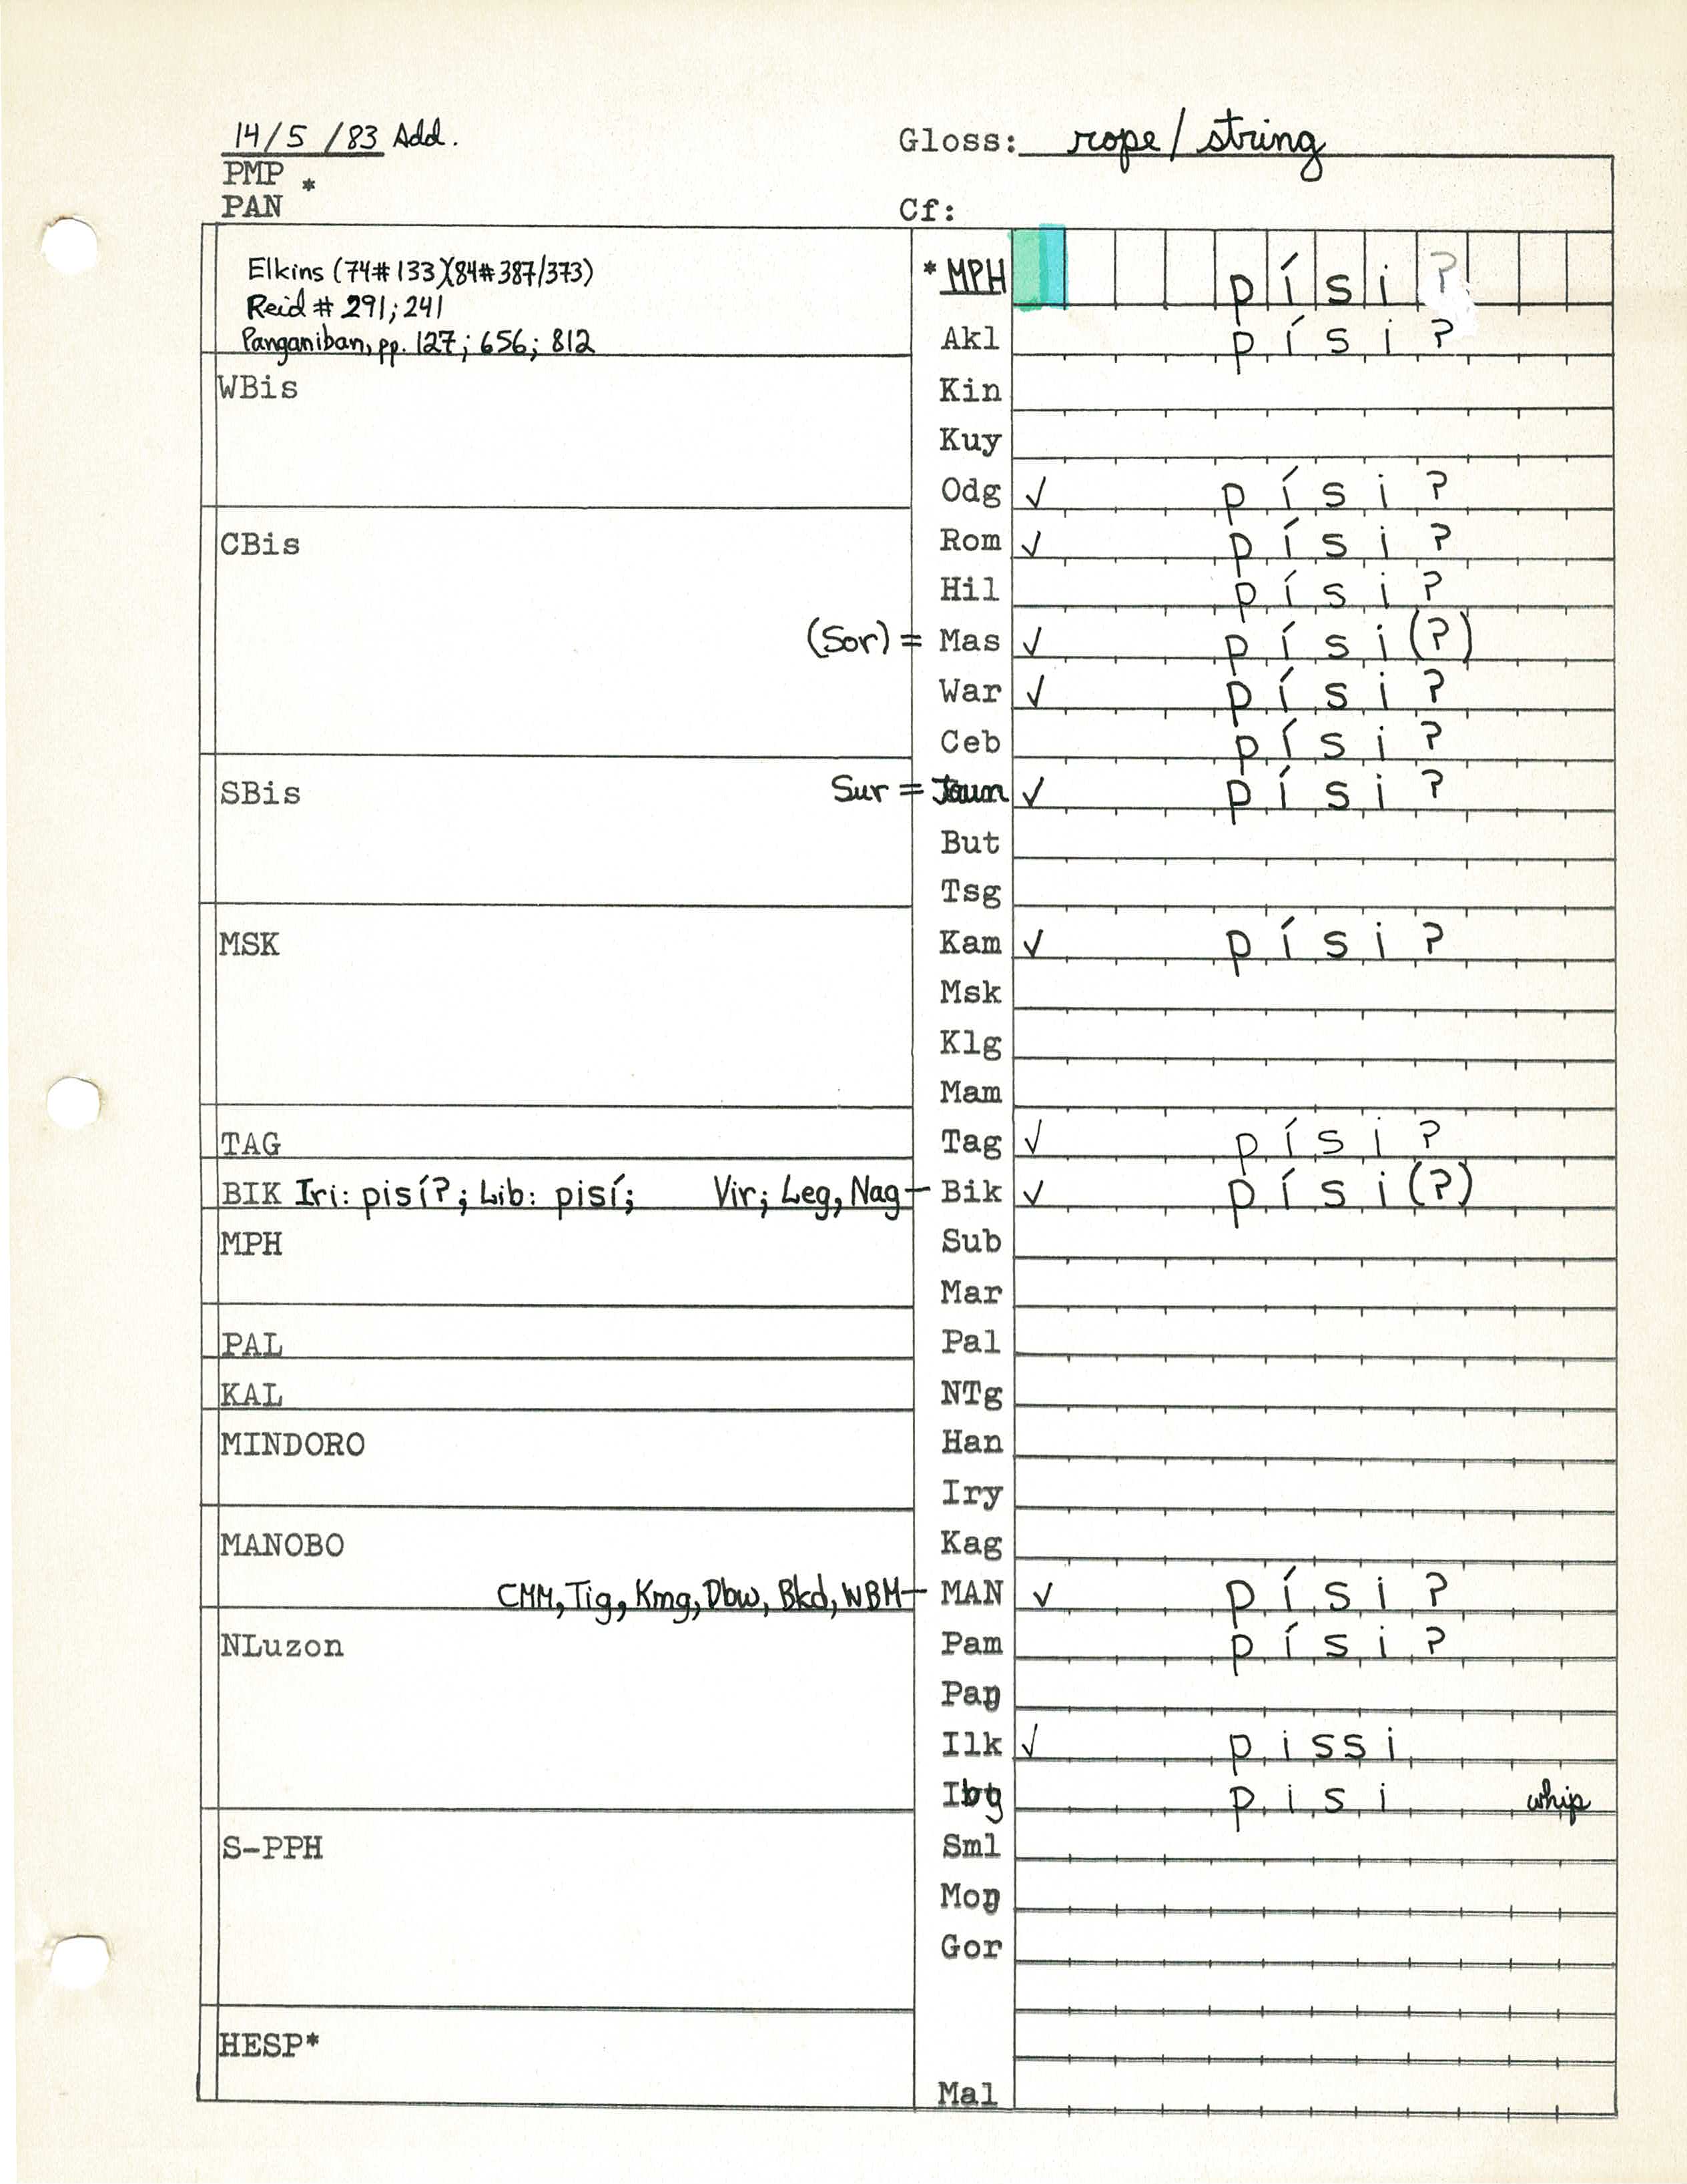 14/5/83 Add.
Gloss: rope/string
PMP *
PAN
Cf:
Elkins (74#133)(84#387/373)
Reid # 291; 241
Panganiban, pp. 127; 656; 812
*MPH písiʔ
Akl písiʔ
WBis
Kin
Kuy
Odg ✓ písiʔ
CBis
Rom ✓ písiʔ
Hil písiʔ
(Sor) = Mas ✓ písi(ʔ)
War ✓ písiʔ
Ceb písiʔ
SBis Sur = Jaun ✓ písiʔ
But
Tsg
MSK
Kam ✓ písiʔ
Msk
Klg
Mam
TAG
Tag ✓ písiʔ
BIK Iri: pisíʔ; Lib: pisí; Vir; Leg, Nag — Bik ✓ písi(ʔ)
MPH
Sub
Mar
PAL
Pal
KAL
NTg
MINDORO
Han
Iry
MANOBO
Kag
CMM, Tig, Kmg, Dbw, Bkd, WBM — MAN ✓ písiʔ
NLuzon
Pam písiʔ
Paŋ
Ilk ✓ pissi
Ibg pisi whip
S-PPH
Sml
Moŋ
Gor
HESP*
Mal